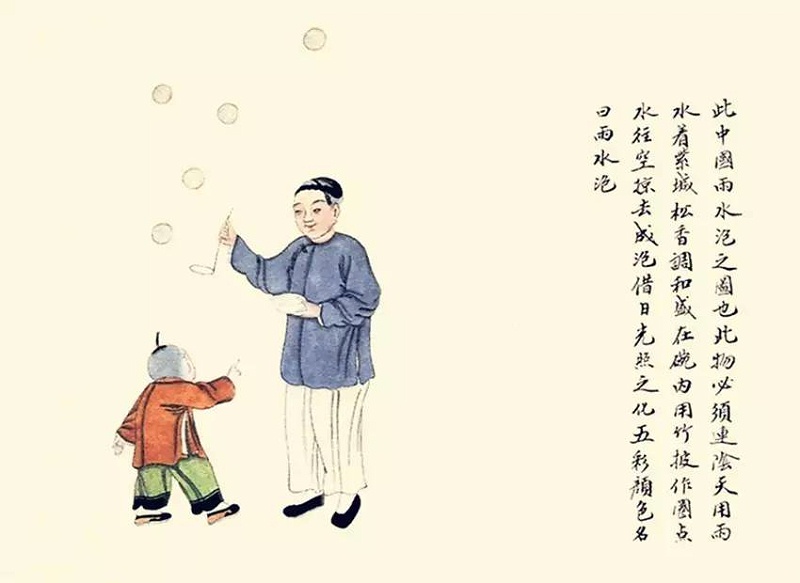 此中國雨水泡之圖也此物必須連陰天用雨
水着紫堿松香調和盛在碗内用竹披作圈点
水往空掠去成泡借日光照之化五彩顔色名
曰雨水泡